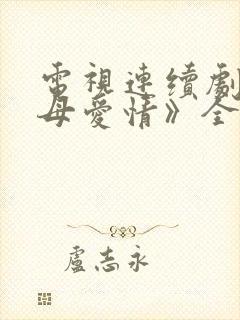 電視連續劇
母愛情》全
盧志永